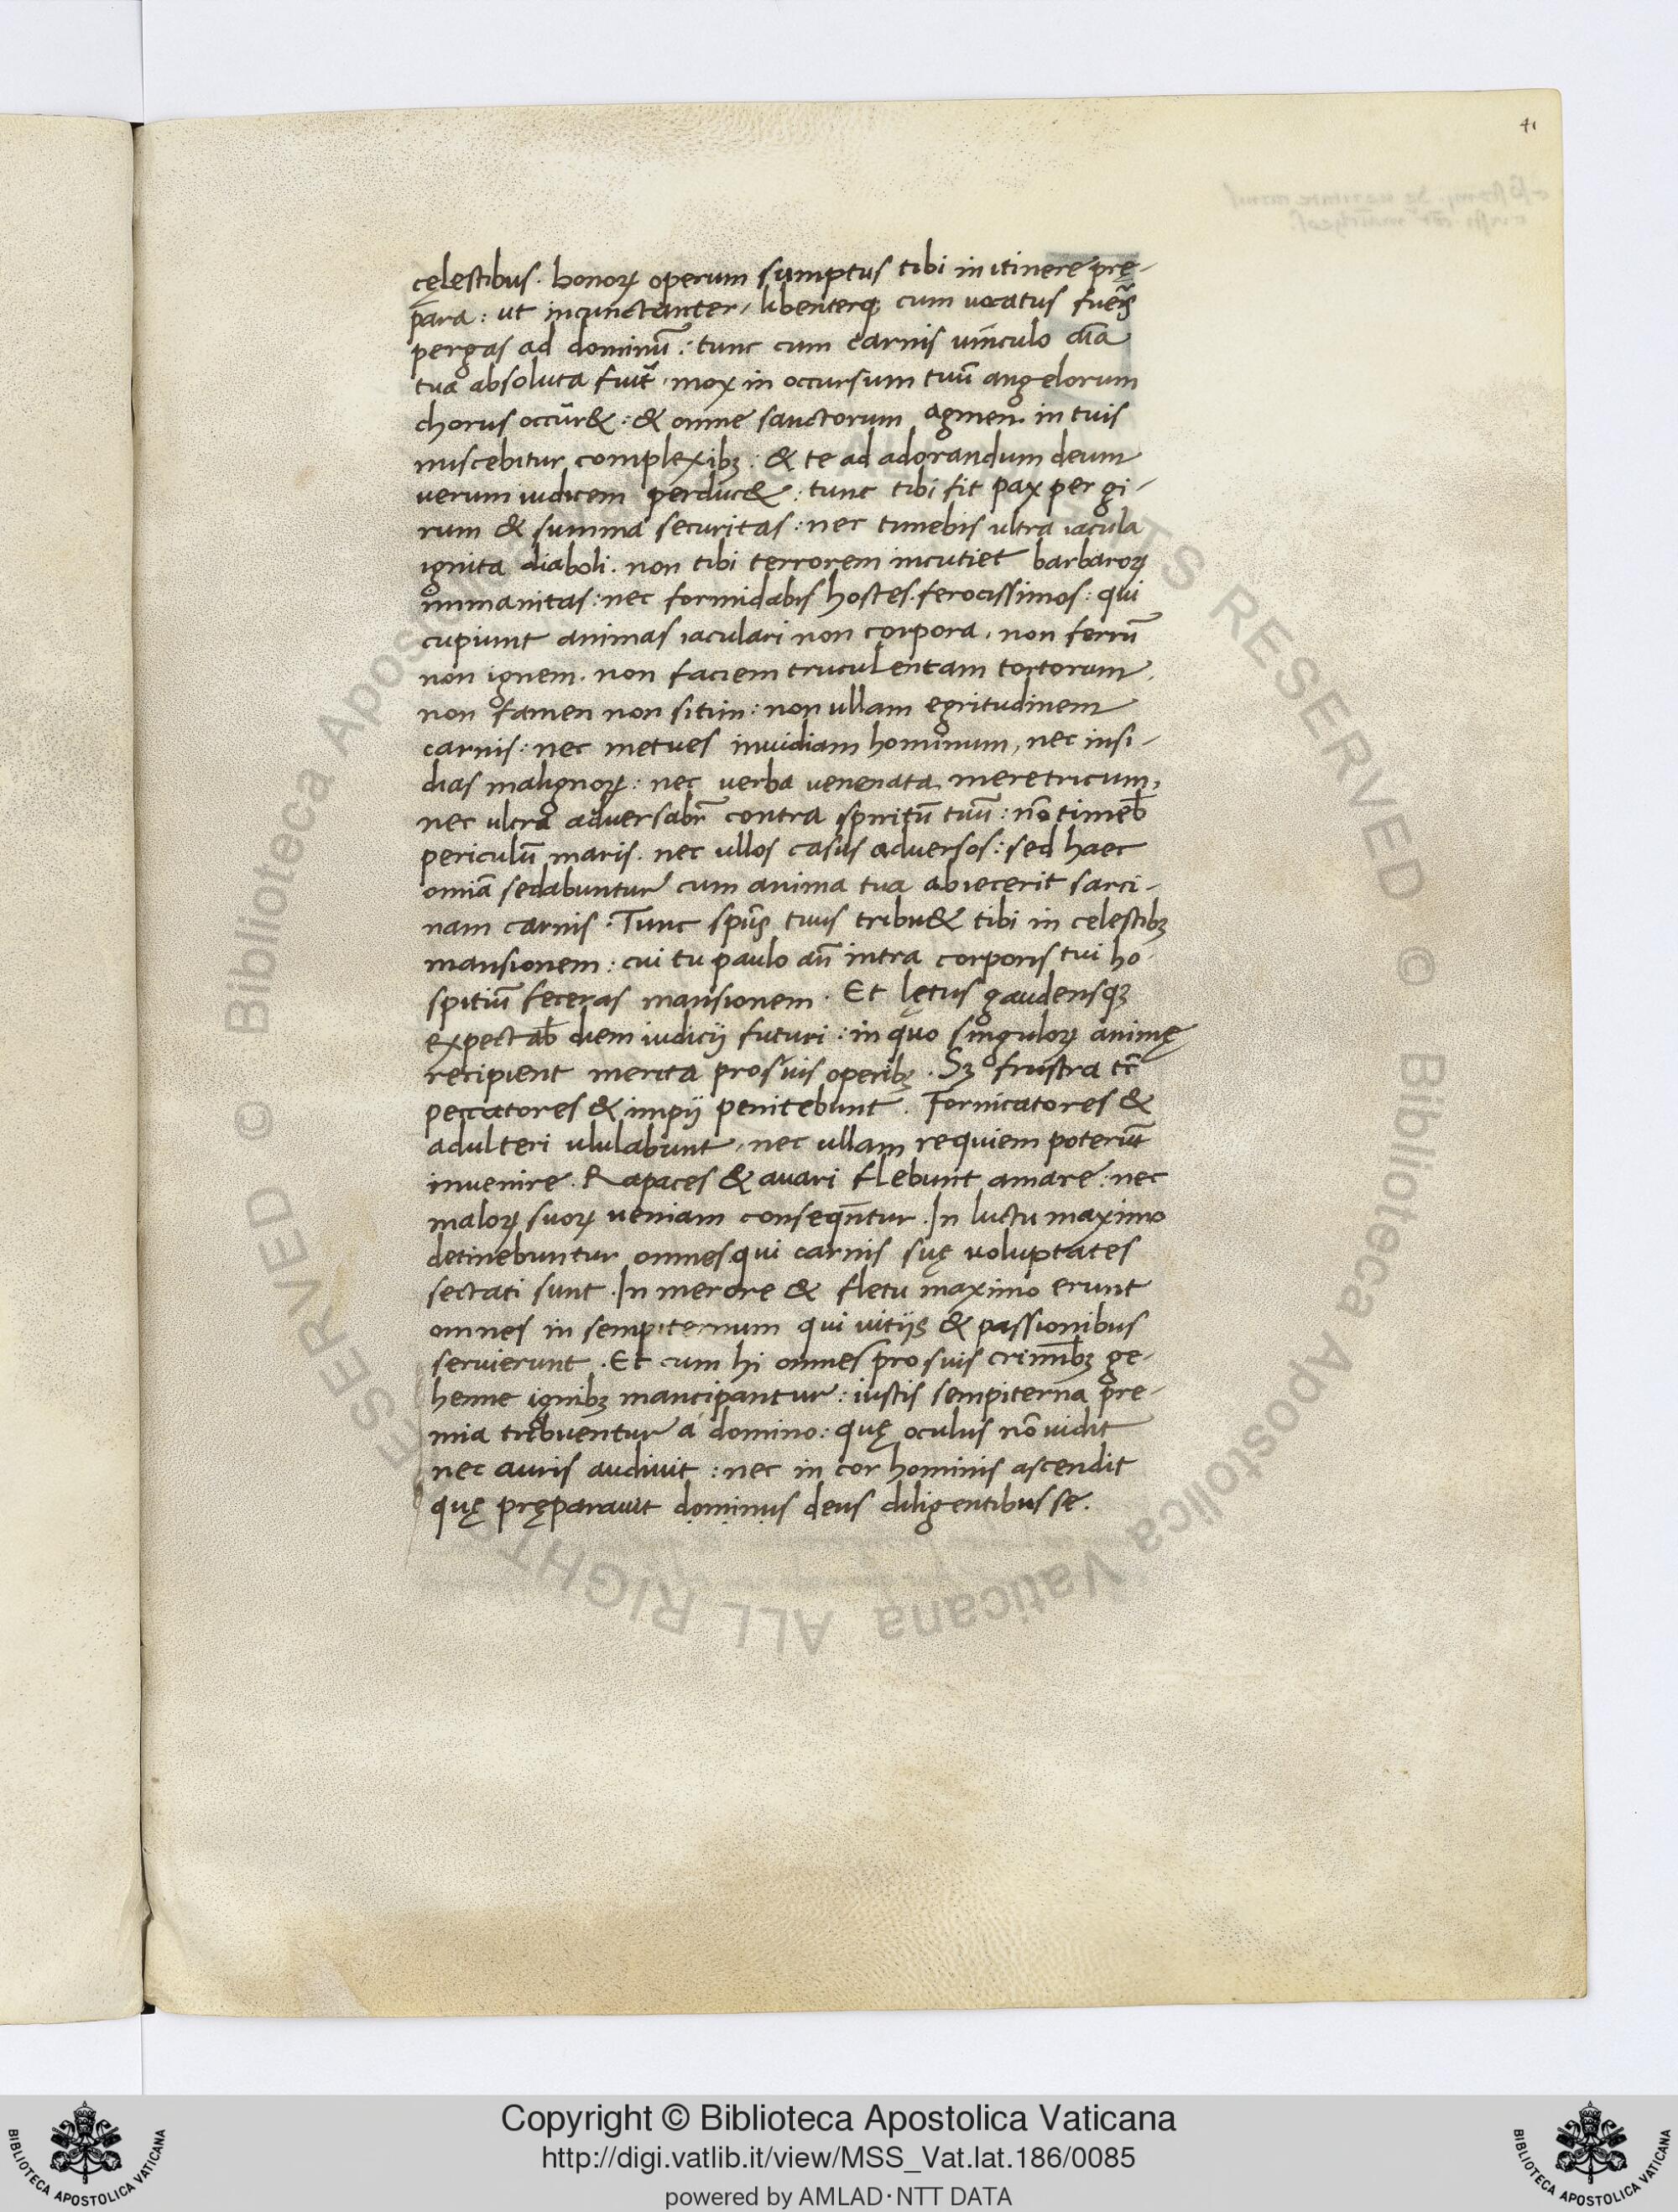 41
cęlestibus. bonoꝝ operum sumptus tibi in itinere prę-
para: ut incunctanter, libenterq; cum vocatus fueris̃
pergas ad dominū: tunc cum carnis vinculo aīa
tua absoluta fuit̃, mox in occursum tuū angelorum
chorus occūr&: & omne sanctorum agmen in tuis
miscebitur complexibꝫ: & te ad adorandum deum
uerum iudicem perduc&: tunc tibi fit pax per gi-
rum & summa securitas: nec timebis ultra iacula
ignita diaboli. non tibi terrorem incutiet barbaroꝝ
inmanitas: nec formidabis hostes ferocissimos: qui
cupiunt animas iaculari non corpora, non ferrū
non ignem. non faciem truculentam tortorum,
non famen non sitim: non ullam egritudinem
carnis: nec metues inuidiam hominum, nec insi-
dias malignoꝝ: nec verba venenata meretricum,
nec ultra adversabr̃ contra spiritū tuū: nō timeb̄
periculū maris. nec ullos casus adversos: sed haec
omīa sedabuntur cum anima tua abiecerit sarci-
nam carnis. Tunc spūs tuus tribu& tibi in celestibꝫ
mansionem: cui tu paulo añ intra corporis tui ho-
spitiū feceras mansionem. Et lętus gaudensqꝫ
expectab̄ diem iudicij futuri: in quo singuloꝝ animę
recipient merita pro suis operibꝫ. Sꝫ frustra tc̄
peccatores & impij penitebunt. Fornicatores &
adulteri ululabunt, nec ullam requiem poterūt
invenire. Rapaces & auari flebunt amare: nec
maloꝝ suoꝝ veniam conseqn̄tur. In luctu maximo
detinebuntur omnes qui carnis suę voluptates
sectati sunt. In merore & fletu maximo erunt
omnes in sempiternum qui uitijs & passionibus
servierunt. Et cum hi omnes pro suis crimīb̄ꝫ ge-
henne ignibꝫ mancipantur: iustis sempiterna pre-
mia tribuentur a domino: quę oculus nō vidit
nec auris audivit: nec in cor hominis ascendit
quę pręparauit dominus deus diligentibus se.
© Biblioteca Apostolica Vaticana ALL RIGHTS RESERVED
Copyright © Biblioteca Apostolica Vaticana
http://digi.vatlib.it/view/MSS_Vat.lat.186/0085
powered by AMLAD·NTT DATA
BIBLIOTECA APOSTOLICA VATICANA
BIBLIOTECA APOSTOLICA VATICANA